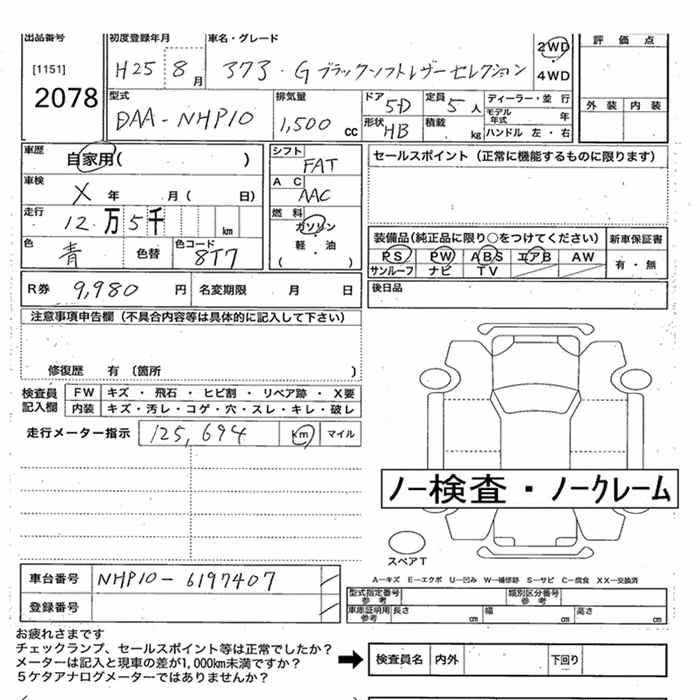 出品番号 初度登録年月 車名・グレード 評価点
[1151] H25 8月 373・Gブラックソフトレザーセレクション 2WD・4WD
2078 型式 排気量 ドア 5D 定員 5人 ディーラー・並行 外装 内装
DAA-NHP10 1,500cc 形状 HB 積載 kg モデル年式 年
ハンドル 左・右
車歴 自家用( ) シフト FAT セールスポイント(正常に機能するものに限ります)
車検 X 年 月( 日) AC AAC
走行 12万5千 km 燃料 ガソリン・軽・油 ( ) 装備品(純正品に限り○をつけてください) 新車保証書
色 青 色替 色コード 8T7 PS PW ABS エアB AW 有・無
サンルーフ ナビ TV
R券 9,980円 名変期限 月 日 後日品
注意事項申告欄(不具合内容等は具体的に記入して下さい)
修復歴 有(箇所 )
検査員記入欄 FW キズ・飛石・ヒビ割・リペア跡・X要
内装 キズ・汚レ・コゲ・穴・スレ・キレ・破レ
走行メーター指示 125,694 km マイル
ノー検査・ノークレーム
スペアT
車台番号 NHP10-6197407 A−キズ E−エクボ U−凹み W−補修跡 S−サビ C−腐食 XX−交換済
型式指定番号参考 類別区分番号参考
登録番号 車庫証明用参考 長さ cm 幅 cm 高さ cm
お疲れさまです
チェックランプ、セールスポイント等は正常でしたか?
メーターは記入と現車の差が1,000km未満ですか? 検査員名 内外 下回り
5ケタアナログメーターではありませんか?